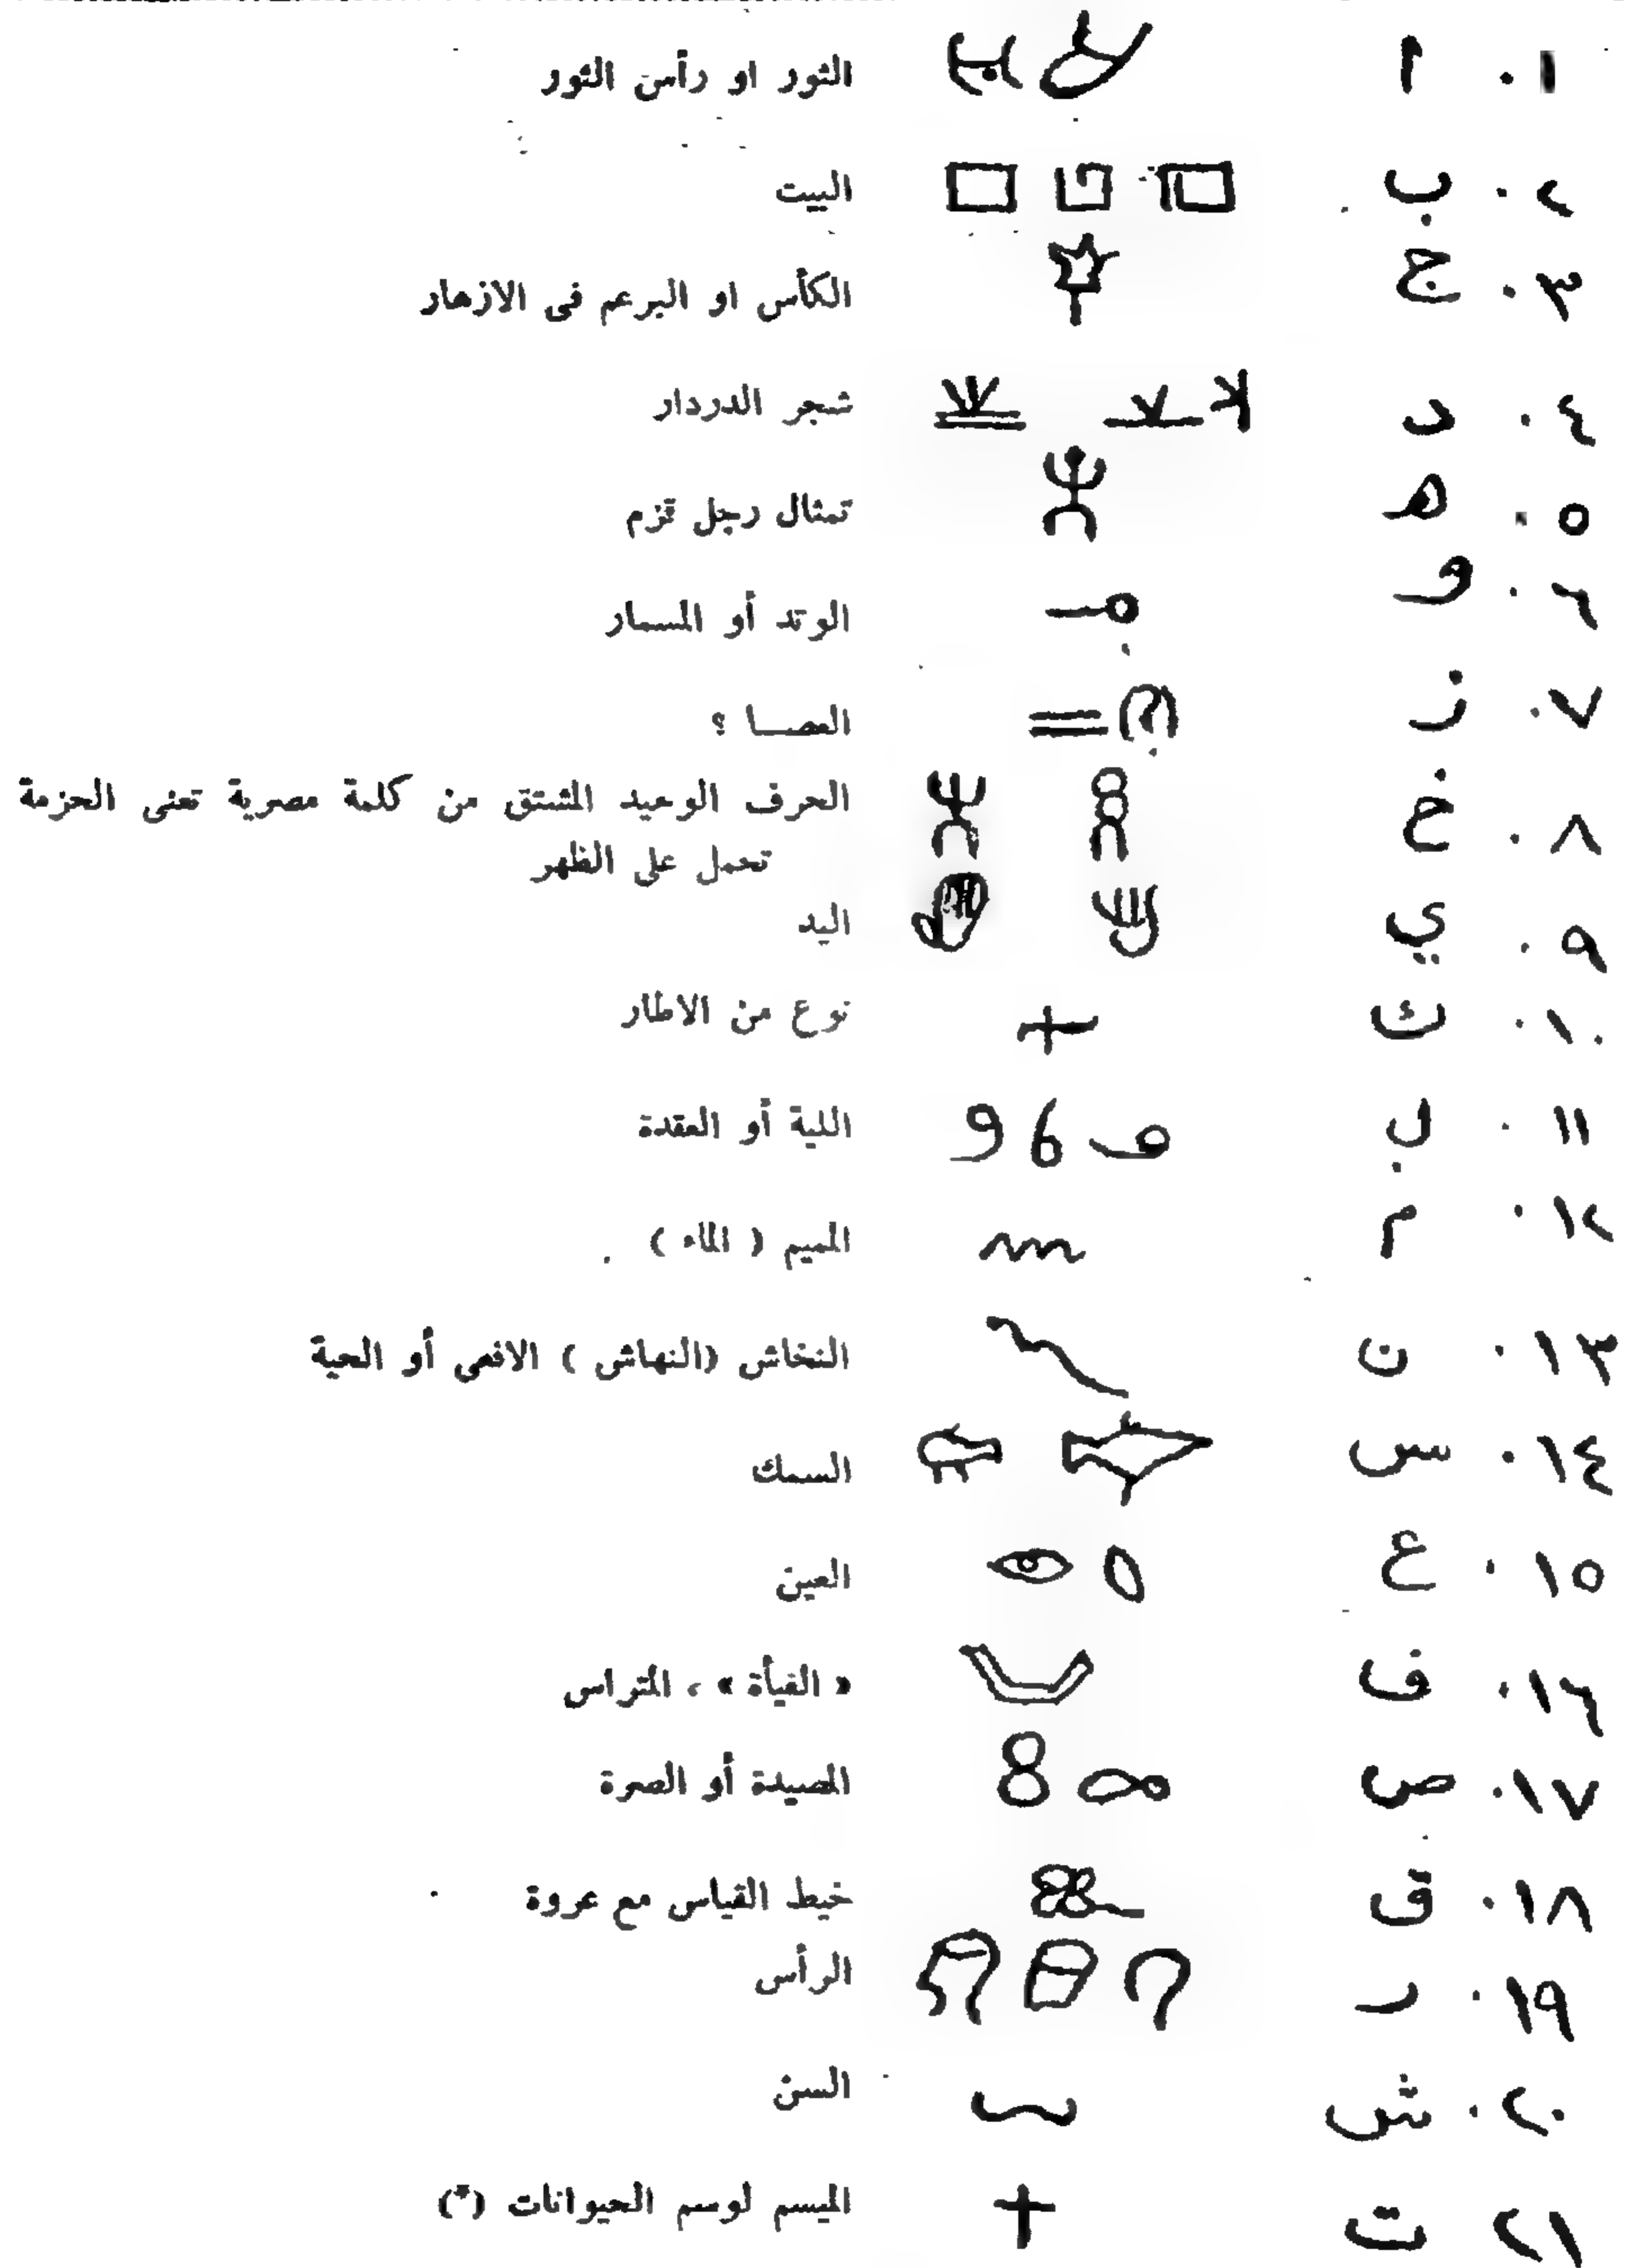 ١. ا الثور او رأس الثور
٢. ب البيت
٣. ج الكأس او البرعم فى الازهار
٤. د شجر الدردار
٥. هـ تمثال رجل قزم
٦. و الوتد أو المسمار
٧. ز العصا ؟
٨. خ الحرف الوحيد المشتق من كلمة مصرية تعنى الحزمة
تحمل على الظهر
٩. ي اليد
١٠. ك نوع من الاطار
١١. ل اللية أو العقدة
١٢. م الميم ( الماء )
١٣. ن النخاش (النهاش ) الافعى أو الحية
١٤. س السمك
١٥. ع العين
١٦. ف « الفيأة » ، المتراس
١٧. ص المصيدة أو الصرة
١٨. ق خيط القياس مع عروة
١٩. ر الرأس
٢٠. ش السن
٢١ ت الميسم لوسم الحيوانات (*)